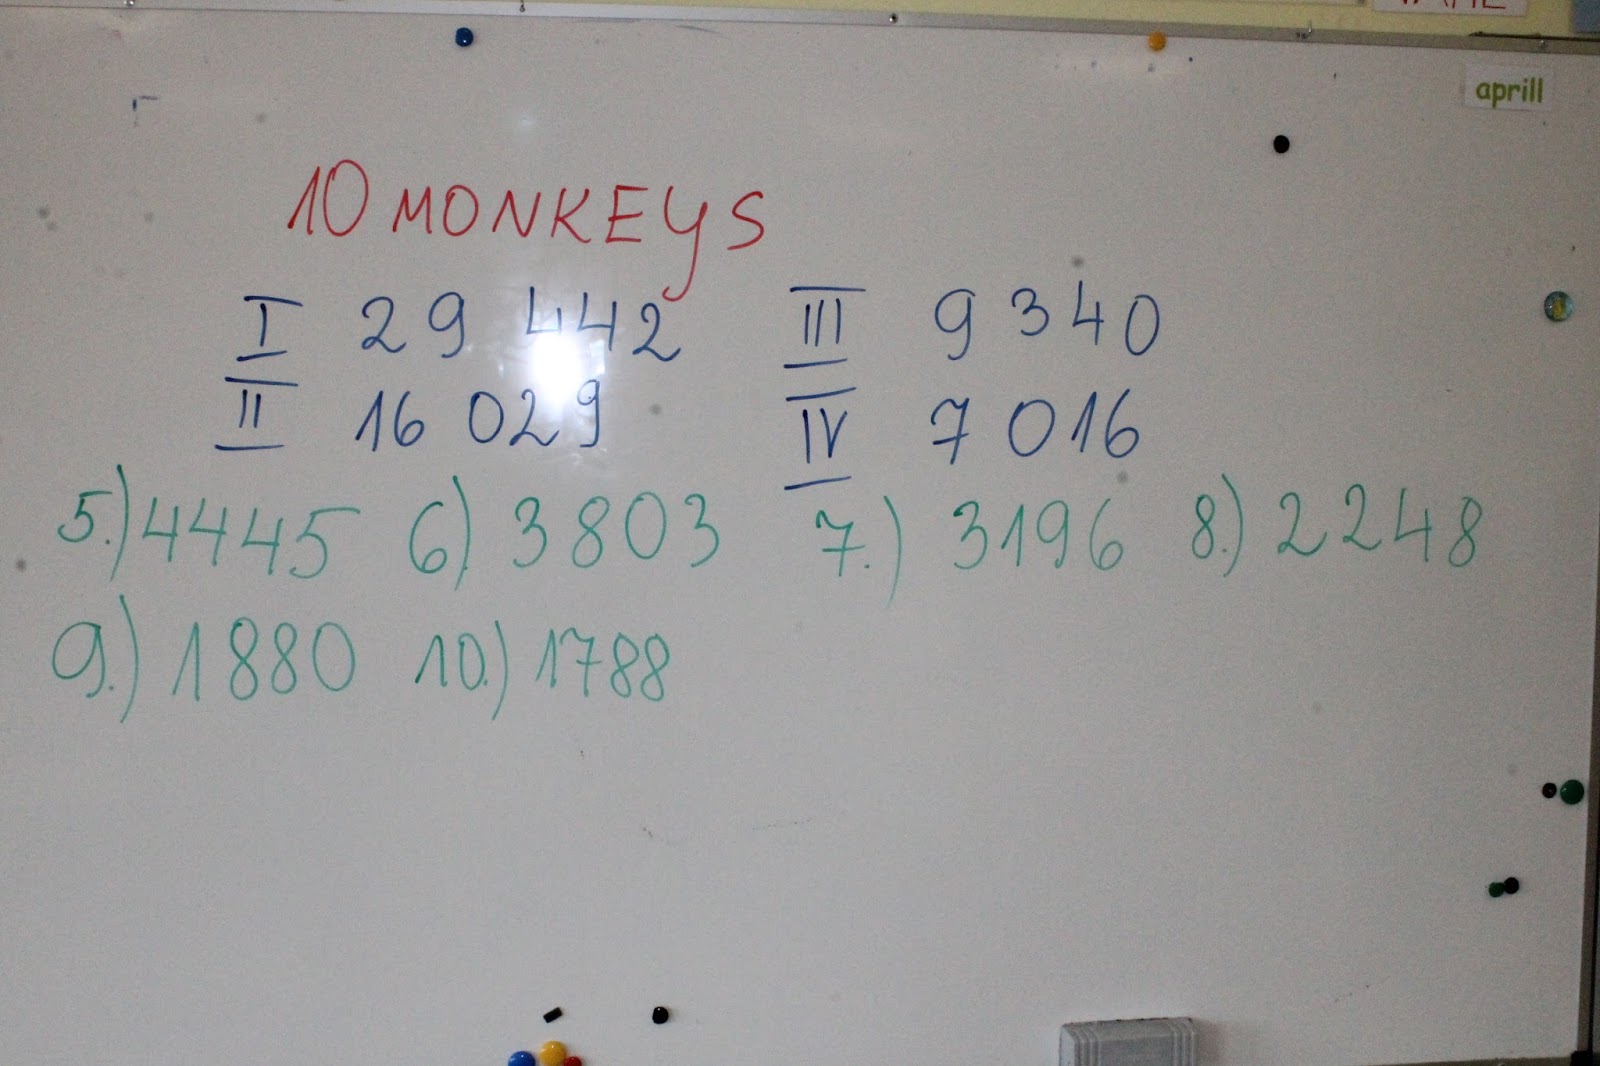 aprill
10 MONKEYS
I 29 442 III 9 340
II 16 029 IV 7 016
5.) 4445 6.) 3803 7.) 3196 8.) 2248
9.) 1880 10.) 1788